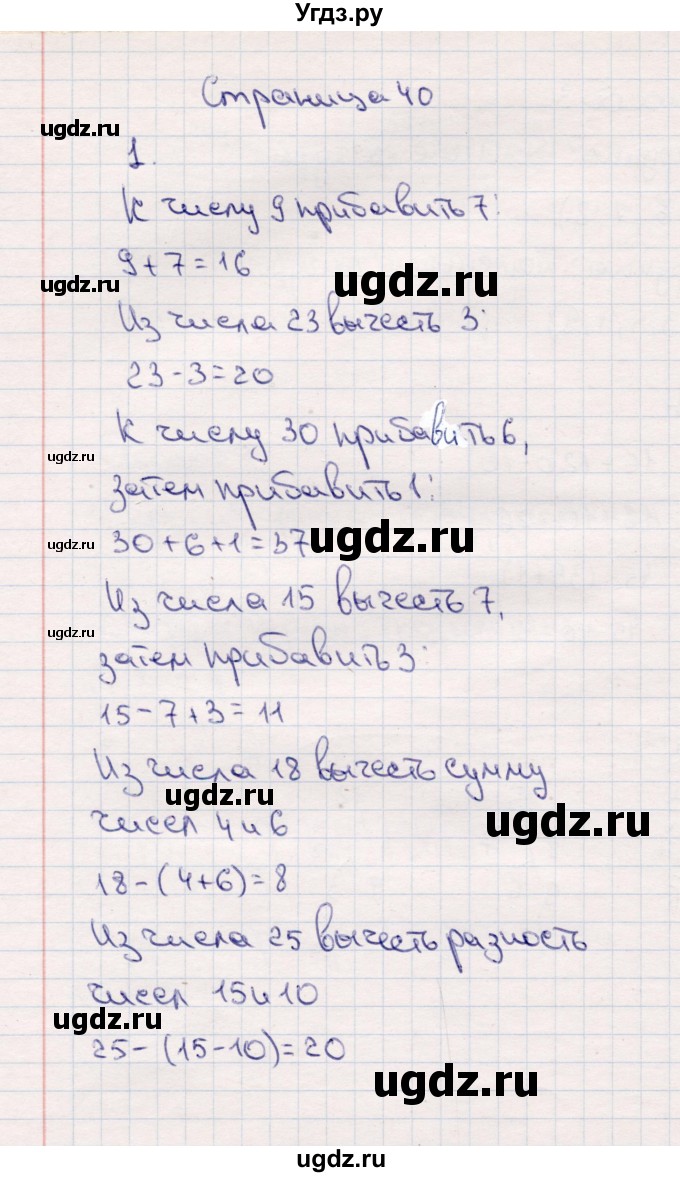 Угдз.ру
Страница 40
ugdz.ru
1.
К числу 9 прибавить 7:
9+7=16
ugdz.ru
ugdz.ru
Из числа 23 вычесть 3:
23-3=20
К числу 30 прибавить 6,
ugdz.ru
затем прибавить 1:
30+6+1=37
ugdz.ru
ugdz.ru
Из числа 15 вычесть 7,
ugdz.ru
затем прибавить 3:
15-7+3=11
Из числа 18 вычесть сумму
ugdz.ru
чисел 4 и 6
ugdz.ru
18-(4+6)=8
Из числа 25 вычесть разность
чисел 15 и 10
ugdz.ru
25-(15-10)=20
ugdz.ru
ugdz.ru